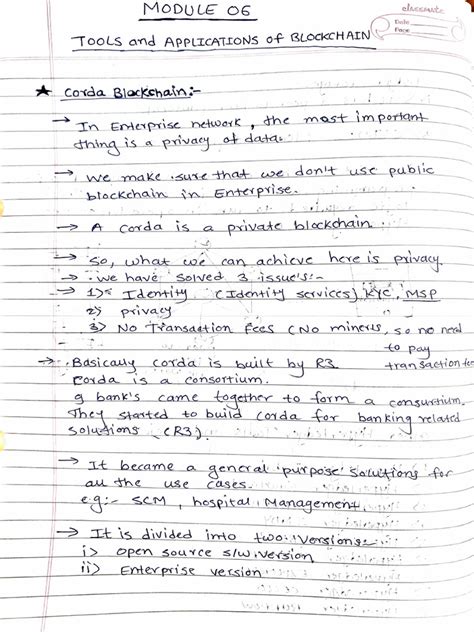 MODULE 06
classmate
Date
Page
TOOLS and APPLICATIONS of BLOCKCHAIN
★ Corda Blockchain:-
→ In Enterprise network, the most important
thing is a privacy of data.
→ We make sure that we don't use public
blockchain in Enterprise.
→ A corda is a private blockchain
→ So, what we can achieve here is privacy.
→ we have solved 3 issue's:-
→ 1) Identity (Identity services) KYC, MSP
2) privacy
3) No Transaction Fees (No miners, so no need
to pay
transaction fee
→ Basically corda is built by R3
Corda is a consortium.
9 bank's came together to form a consurtium.
They started to build corda for banking related
solutions (R3).
→ It became a general 'purpose' solutions for
all the use cases.
e.g:- SCM, hospital Management.
→ It is divided into two versions:
i> open source s/w version
ii> Enterprise version